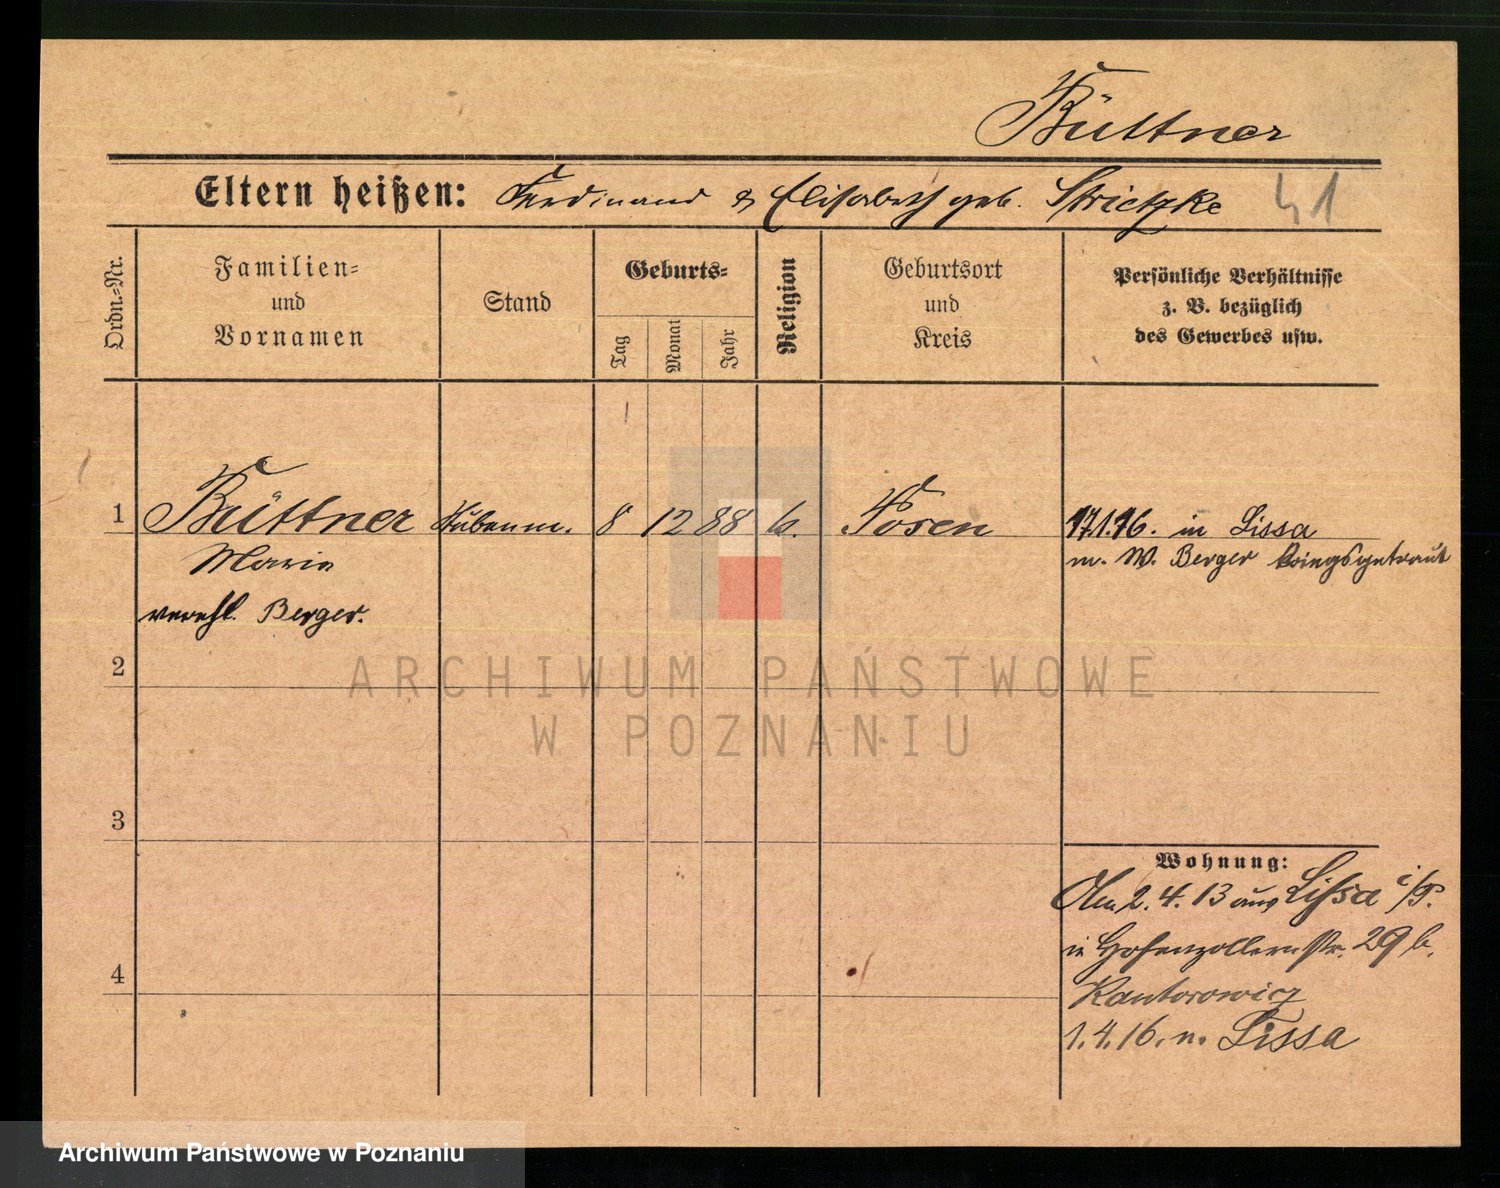 Büttner
Eltern heißen: Ferdinand & Elisabeth geb. Strietzke 41
Ordn.-Nr.
Familien-
und
Vornamen
Stand
Geburts-
Tag
Monat
Jahr
Religion
Geburtsort
und
Kreis
Persönliche Verhältnisse
z. B. bezüglich
des Gewerbes usw.
1 Büttner 8 12 88 Posen 17.1.16. in Lissa
Marie m. W. Berger kriegsgetraut
verehl. Berger.
2
3
4
Wohnung:
2.4.13 aus Lissa i/P.
in Hohenzollernstr. 29 b.
Kantorowicz
1.4.16. n. Lissa
ARCHIWUM PAŃSTWOWE
W POZNANIU
Archiwum Państwowe w Poznaniu